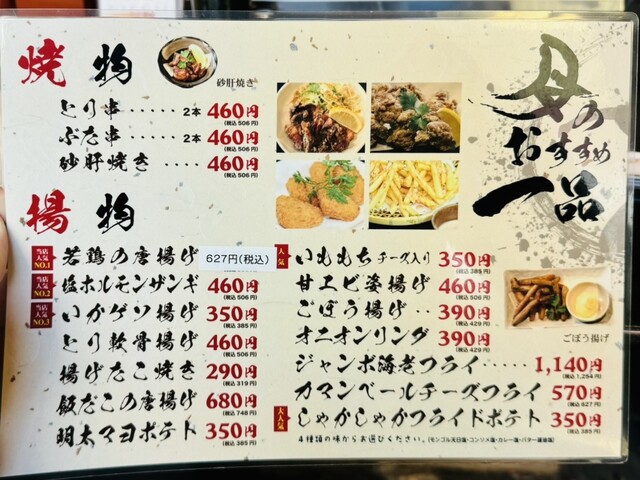 母の
おすすめ
一品
焼物
砂肝焼き
とり串 ······ 2本 460円
(税込 506円)
ぶた串 ······ 2本 460円
(税込 506円)
砂肝焼き ···· 460円
(税込 506円)
揚物
当店人気NO.1 若鶏の唐揚げ 627円(税込)
当店人気NO.2 塩ホルモンザンギ 460円
(税込 506円)
当店人気NO.3 いかゲソ揚げ 350円
(税込 385円)
とり軟骨揚げ 460円
(税込 506円)
揚げたこ焼き 290円
(税込 319円)
飯だこの唐揚げ 680円
(税込 748円)
明太マヨポテト 350円
(税込 385円)
人気 いももち チーズ入り 350円
(税込 385円)
甘エビ姿揚げ 460円
(税込 506円)
ごぼう揚げ ·· 390円
(税込 429円)
オニオンリング 390円
(税込 429円)
ジャンボ海老フライ ····· 1,140円
(税込 1,254円)
カマンベールチーズフライ 570円
(税込 627円)
大人気 しゃかしゃかフライドポテト 350円
(税込 385円)
4種類の味からお選びください。(モンゴル天日塩・コンソメ塩・カレー塩・バター醤油塩)
ごぼう揚げ